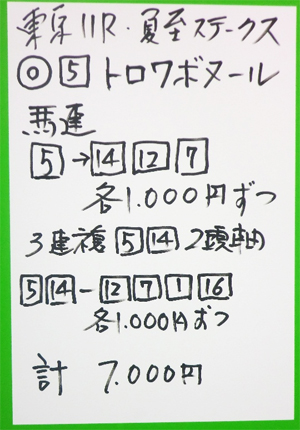 東京11R・夏至ステークス
◎ 5 トロワボヌール
馬連
5→14 12 7
各1.000円ずつ
3連複 5 14 2頭軸
5 14-12 7 1 16
各1.000円ずつ
計 7.000円